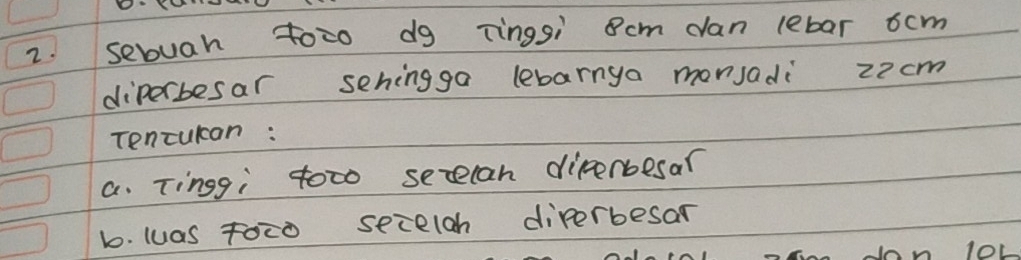 2. sebuah foto dg Tinggi 8cm dan lebar 6cm
diperbesar sehingga lebarnya menjadi 22cm
Tentukan :
a. Tinggi foto setelah diperbesar
b. luas foto setelah diperbesar
dan